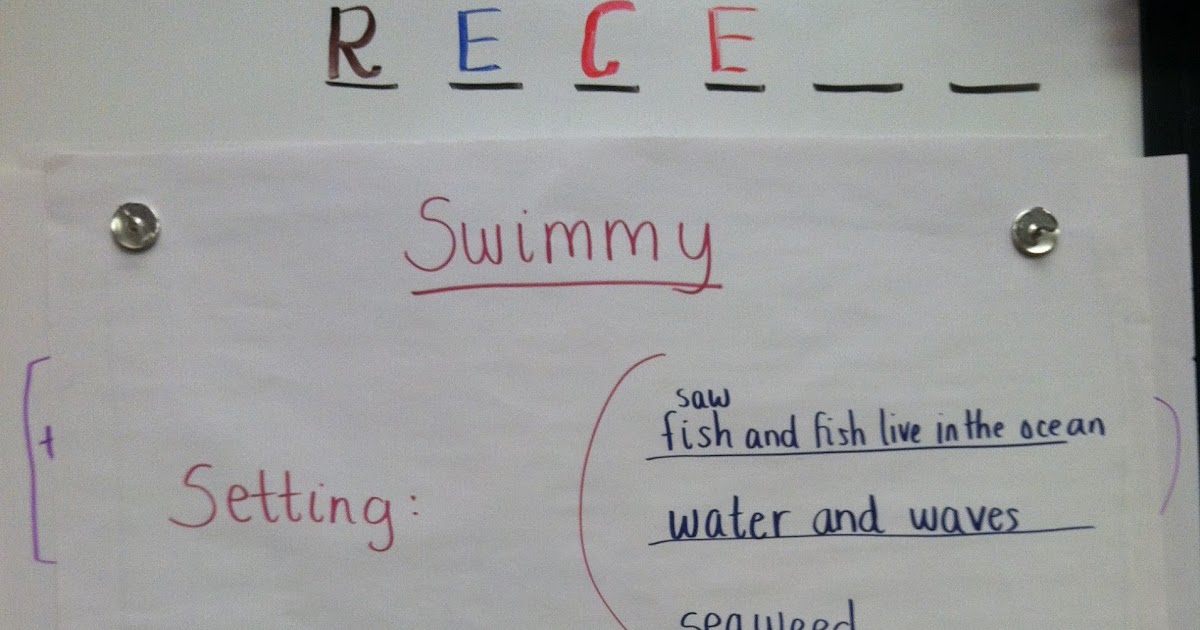 R E C E _ _
Swimmy
saw
fish and fish live in the ocean
Setting:
water and waves
seaweed